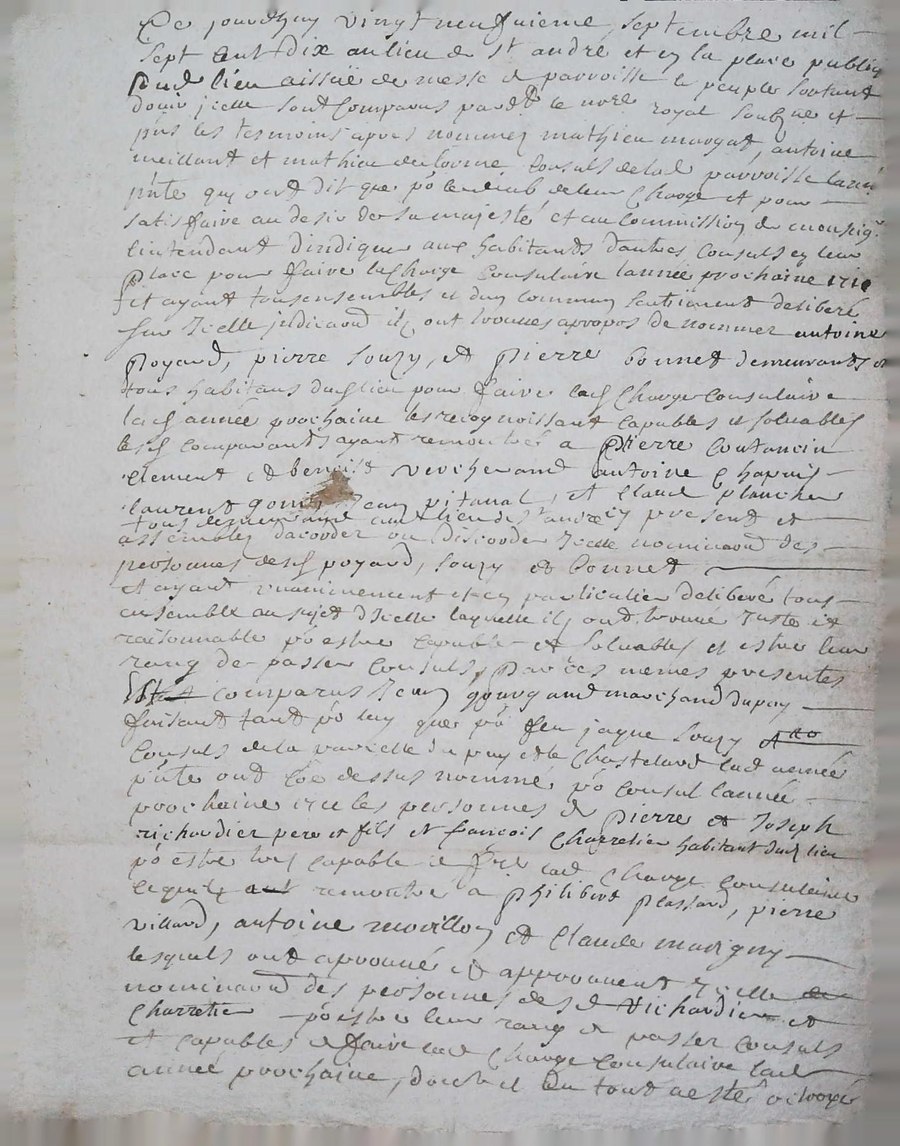 Ce jourdhuy vingt neufuieme septembre mil
Sept cent dix au lieu de st andre et en la place publiq
dud lieu aissüe de messe de parroisse le peuple sortant
dicelle sont comparus pardt le nore royal soubzné et
pñs les tesmoins apres nommez mathieu margat, antoine
meillant et mathieu delorme consuls de lad parroisse lannée
pñte quy ont dit que po le deub de leur charge et pour
satisfaire au desir de sa majesté et au commission de monseigr
lintendant dindiquer aux habitants dautres consuls en leur
place pour faire la charge consulaire lannée prochaine 1711
et ayant tous ensembles et dun commun sentiment deliberé
sur icelle indicaon ilz ont trouues apropos de nommer antoine
poyard, pierre souzy, et pierre bonnet demeurants et
tous habitans dud lieu pour faire lad charge consulaire
lad année prochaine les recognoissant capables et soluables
lesd comparants ayant remonstré a pierre coutancin
clement et benoist vercherand antoine chapuis
laurent gonin jean pitaual, et claude plancher
tous demeurans aud lieu de st andre cy present et
assemblez daccorder ou discorder icelle nominaon des
personnes desd poyard, souzy et bonnet
et ayant unanimement et en particulier deliberé tous
ensemble au sujet dicelle laquelle ils ont trouué juste et
raisonnable po estre capables et soluables et estre leur
rang de passer consuls, par ces memes presentes
comparus jean gourgand marchand du puy
faisant tant po luy que po feu jaque souzy
consuls de la parcelle du puy et le chastelard lad année
pñte ont cõe dessus nommé po consul lannée
prochaine 1711 les personnes de pierre et joseph
richardier pere et fils et francois charretier habitant dud lieu
po estre tres capable de fre lad charge consulaire
lequel remontre a philibert plassard, pierre
villard, antoine morillon et claude marigny
lesquels ont aprouué et approuuent icelle
nominaon des personnes desd richardier et
charretier po estre leur rang de passer consuls
et capables de faire lad charge consulaire lad
année prochaine, dont et du tout acte octroyé